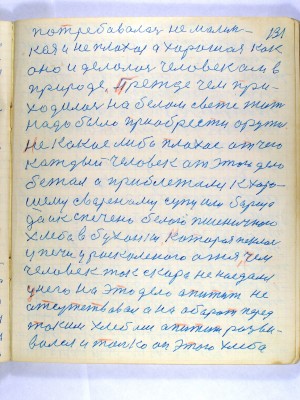 131
потребавалас не малень-
кая и не плахая а харошая как
оно и делолас человекам в
природе. Прежде чем при-
ходилас на белом свете жит
надо было приобрести
не какое либа плахае от чего
каждый человек от этого дела
бежал а приближалис к харо-
шему свареному супу или борщу
да и к спечено белого пшеничного
хлеба в буханки
у печи у раскаленого огня, чем
человек так скара не наедалса
у него на это дело апитит не
атсутствавал а на абарот перед
таким хлебам апитит разви-
валса и толко от этого хлеба